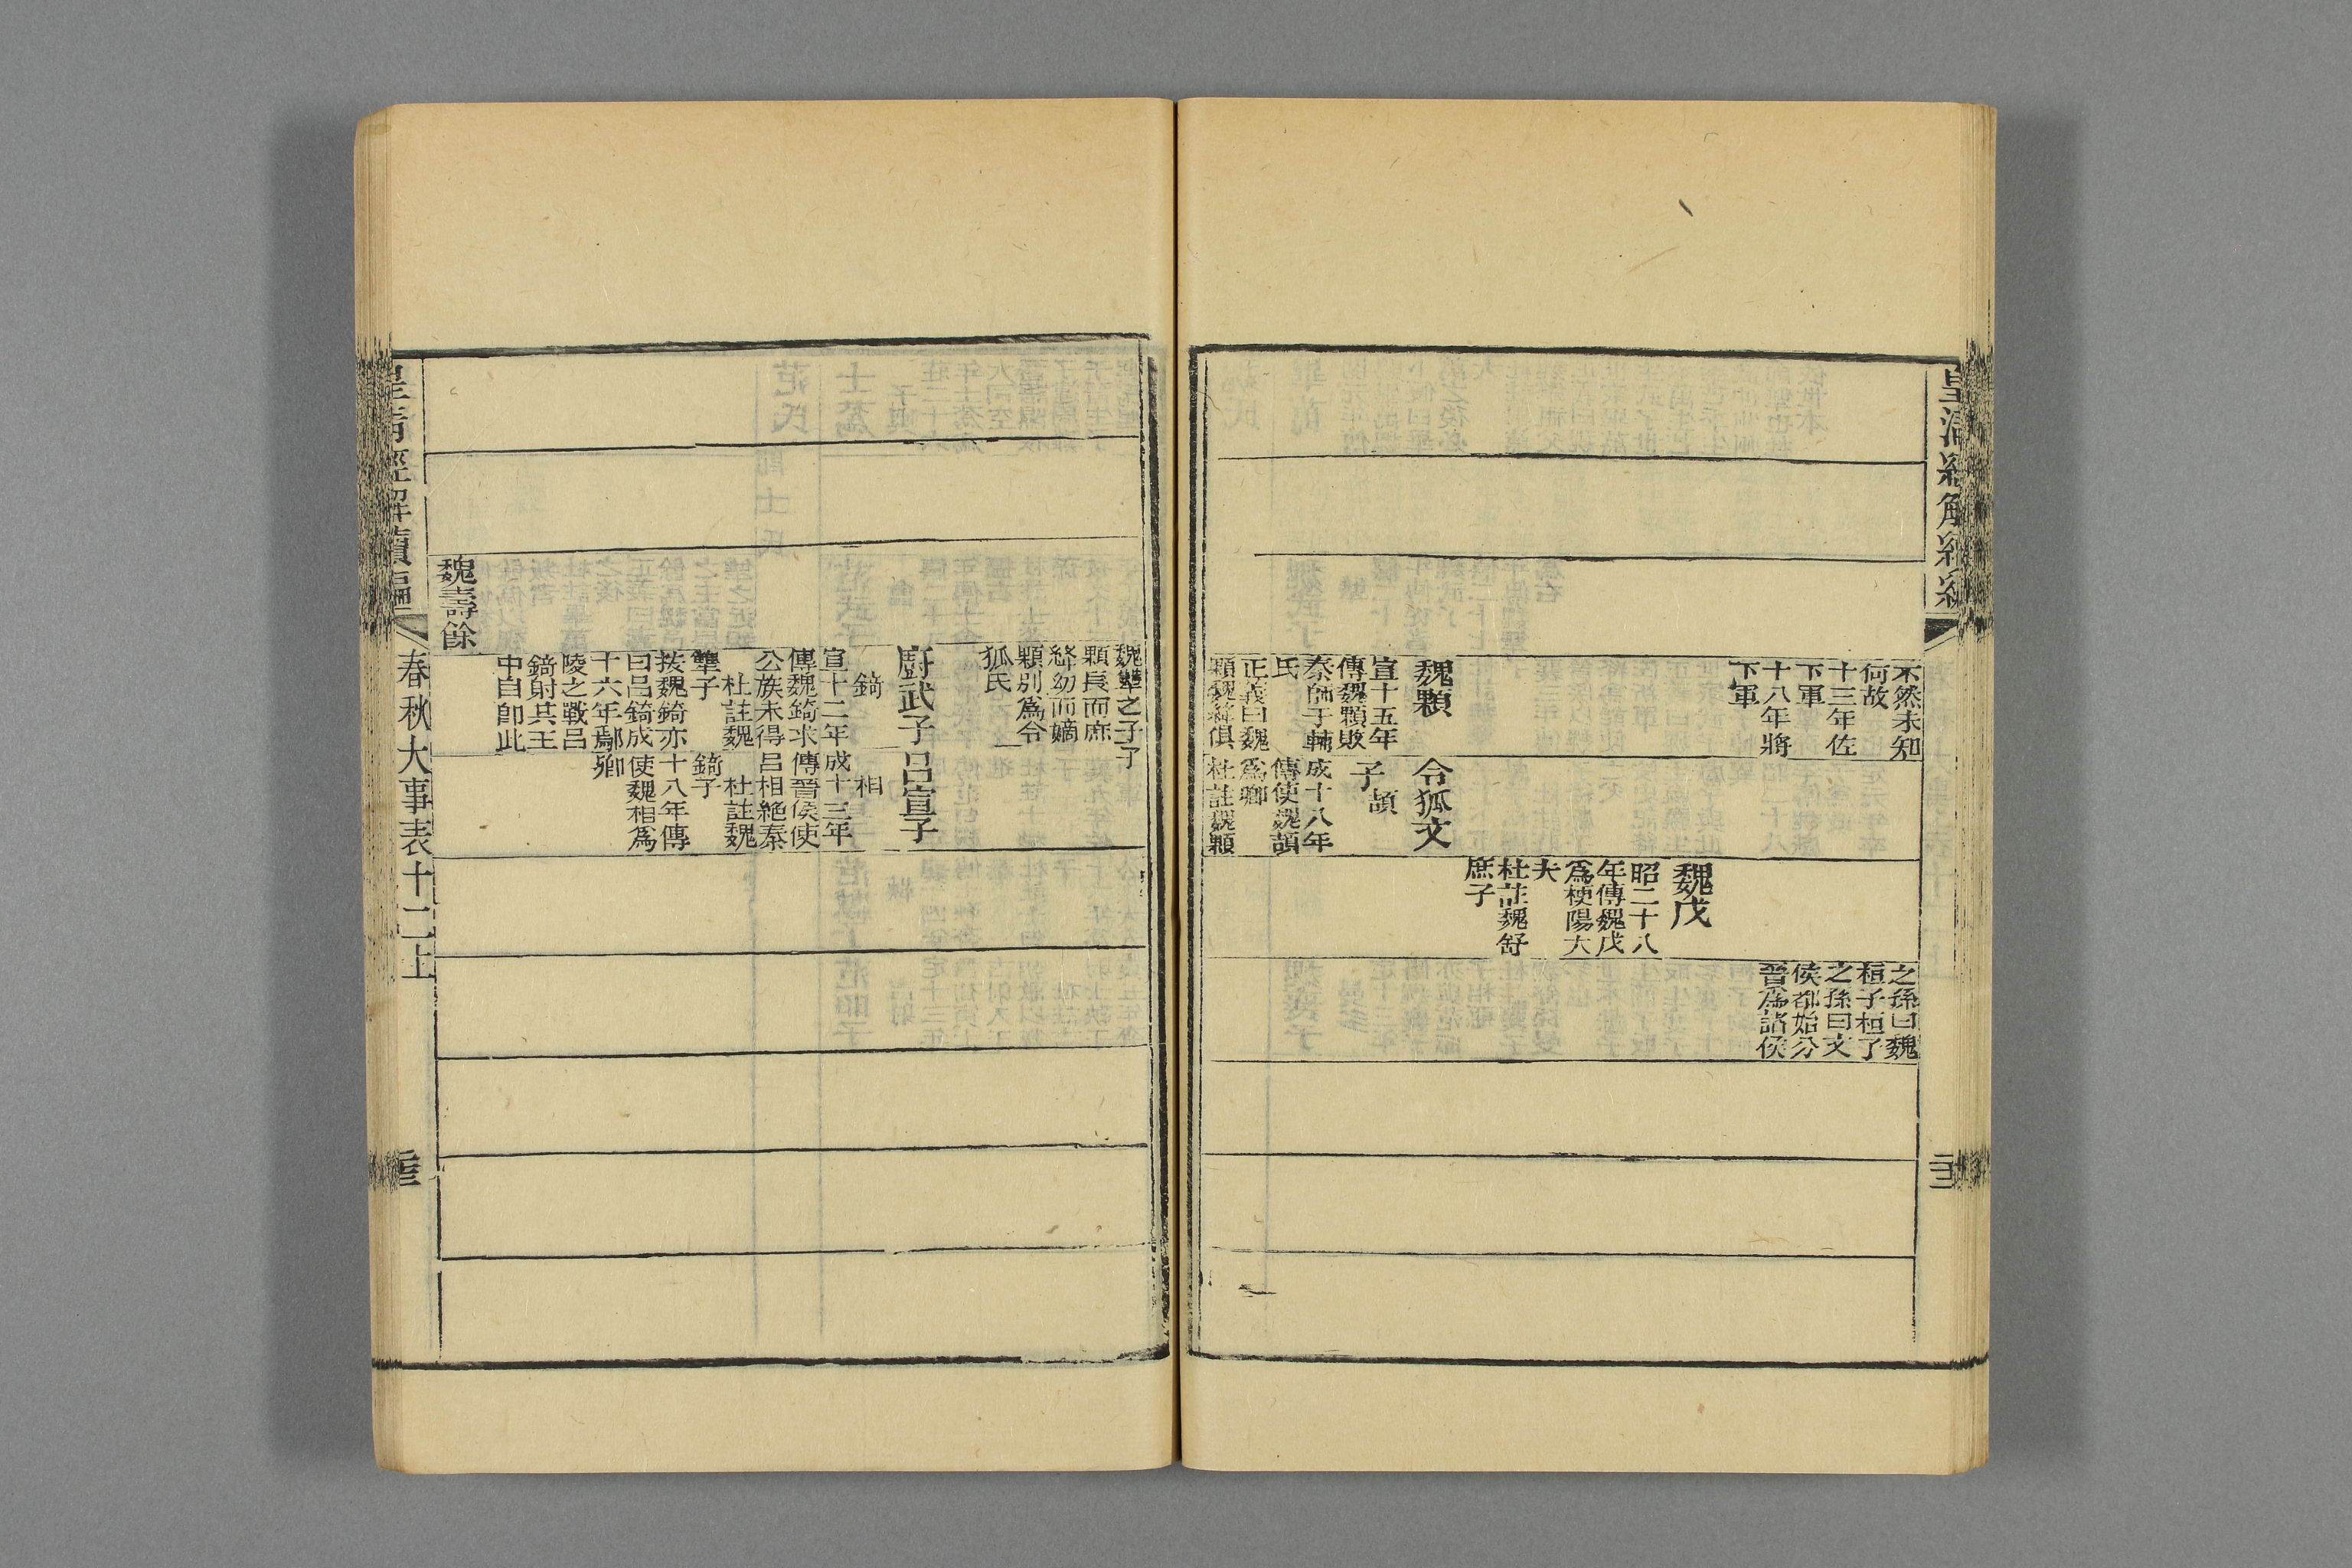 皇清經解續編
不然未知
何故
十三年佐
下軍
十八年將
下軍
魏顆
宣十五年
傳魏顆敗
秦師于輔
氏
正義曰魏
顆魏絳俱
令狐文
子頡
成十八年
傳使魏頡
爲卿
杜註魏顆
子
魏戊
昭二十八
年傳魏戊
爲梗陽大
夫
杜註魏舒
庶子
之孫曰魏
桓子桓子
之孫曰文
侯都始分
晉爲諸侯
魏犨之子
顆長而庶
絳幼而嫡
顆別爲令
狐氏
廚武子
錡
宣十二年
傳魏錡求
公族未得
杜註魏
犨子
按魏錡亦
曰呂錡成
十六年鄢
陵之戰呂
錡射共王
中自卽此
呂宣子
相
成十三年
傳晉侯使
呂相絕秦
杜註魏
錡子
十八年傳
使魏相爲
卿
魏壽餘
皇清經解續編
春秋大事表十二上